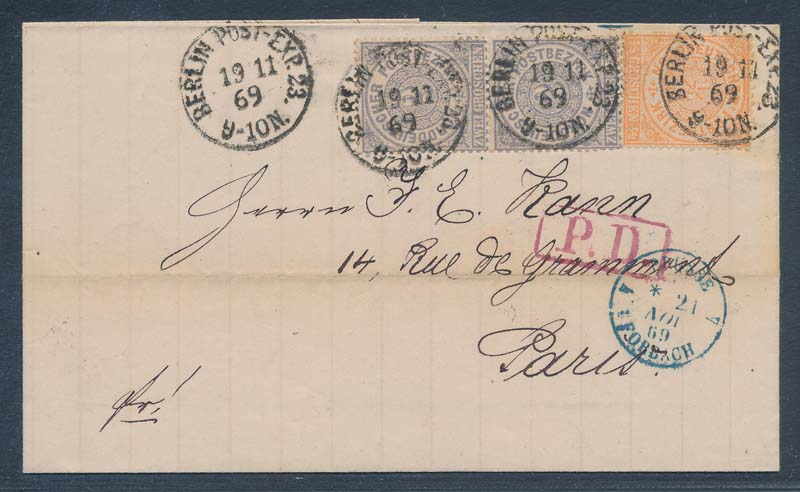 BERLIN POST-EXP. 23.
19 11
69
8-10N.
BERLIN POST-EXP. 23.
19 11
69
8-10N.
BERLIN POST-EXP. 23.
19 11
69
8-10N.
BERLIN POST-EXP. 23.
19 11
69
8-10N.
Herrn J. E. Kann
P.D.
14, Rue de Grammont
21
69
FORBACH
Paris.
fr!